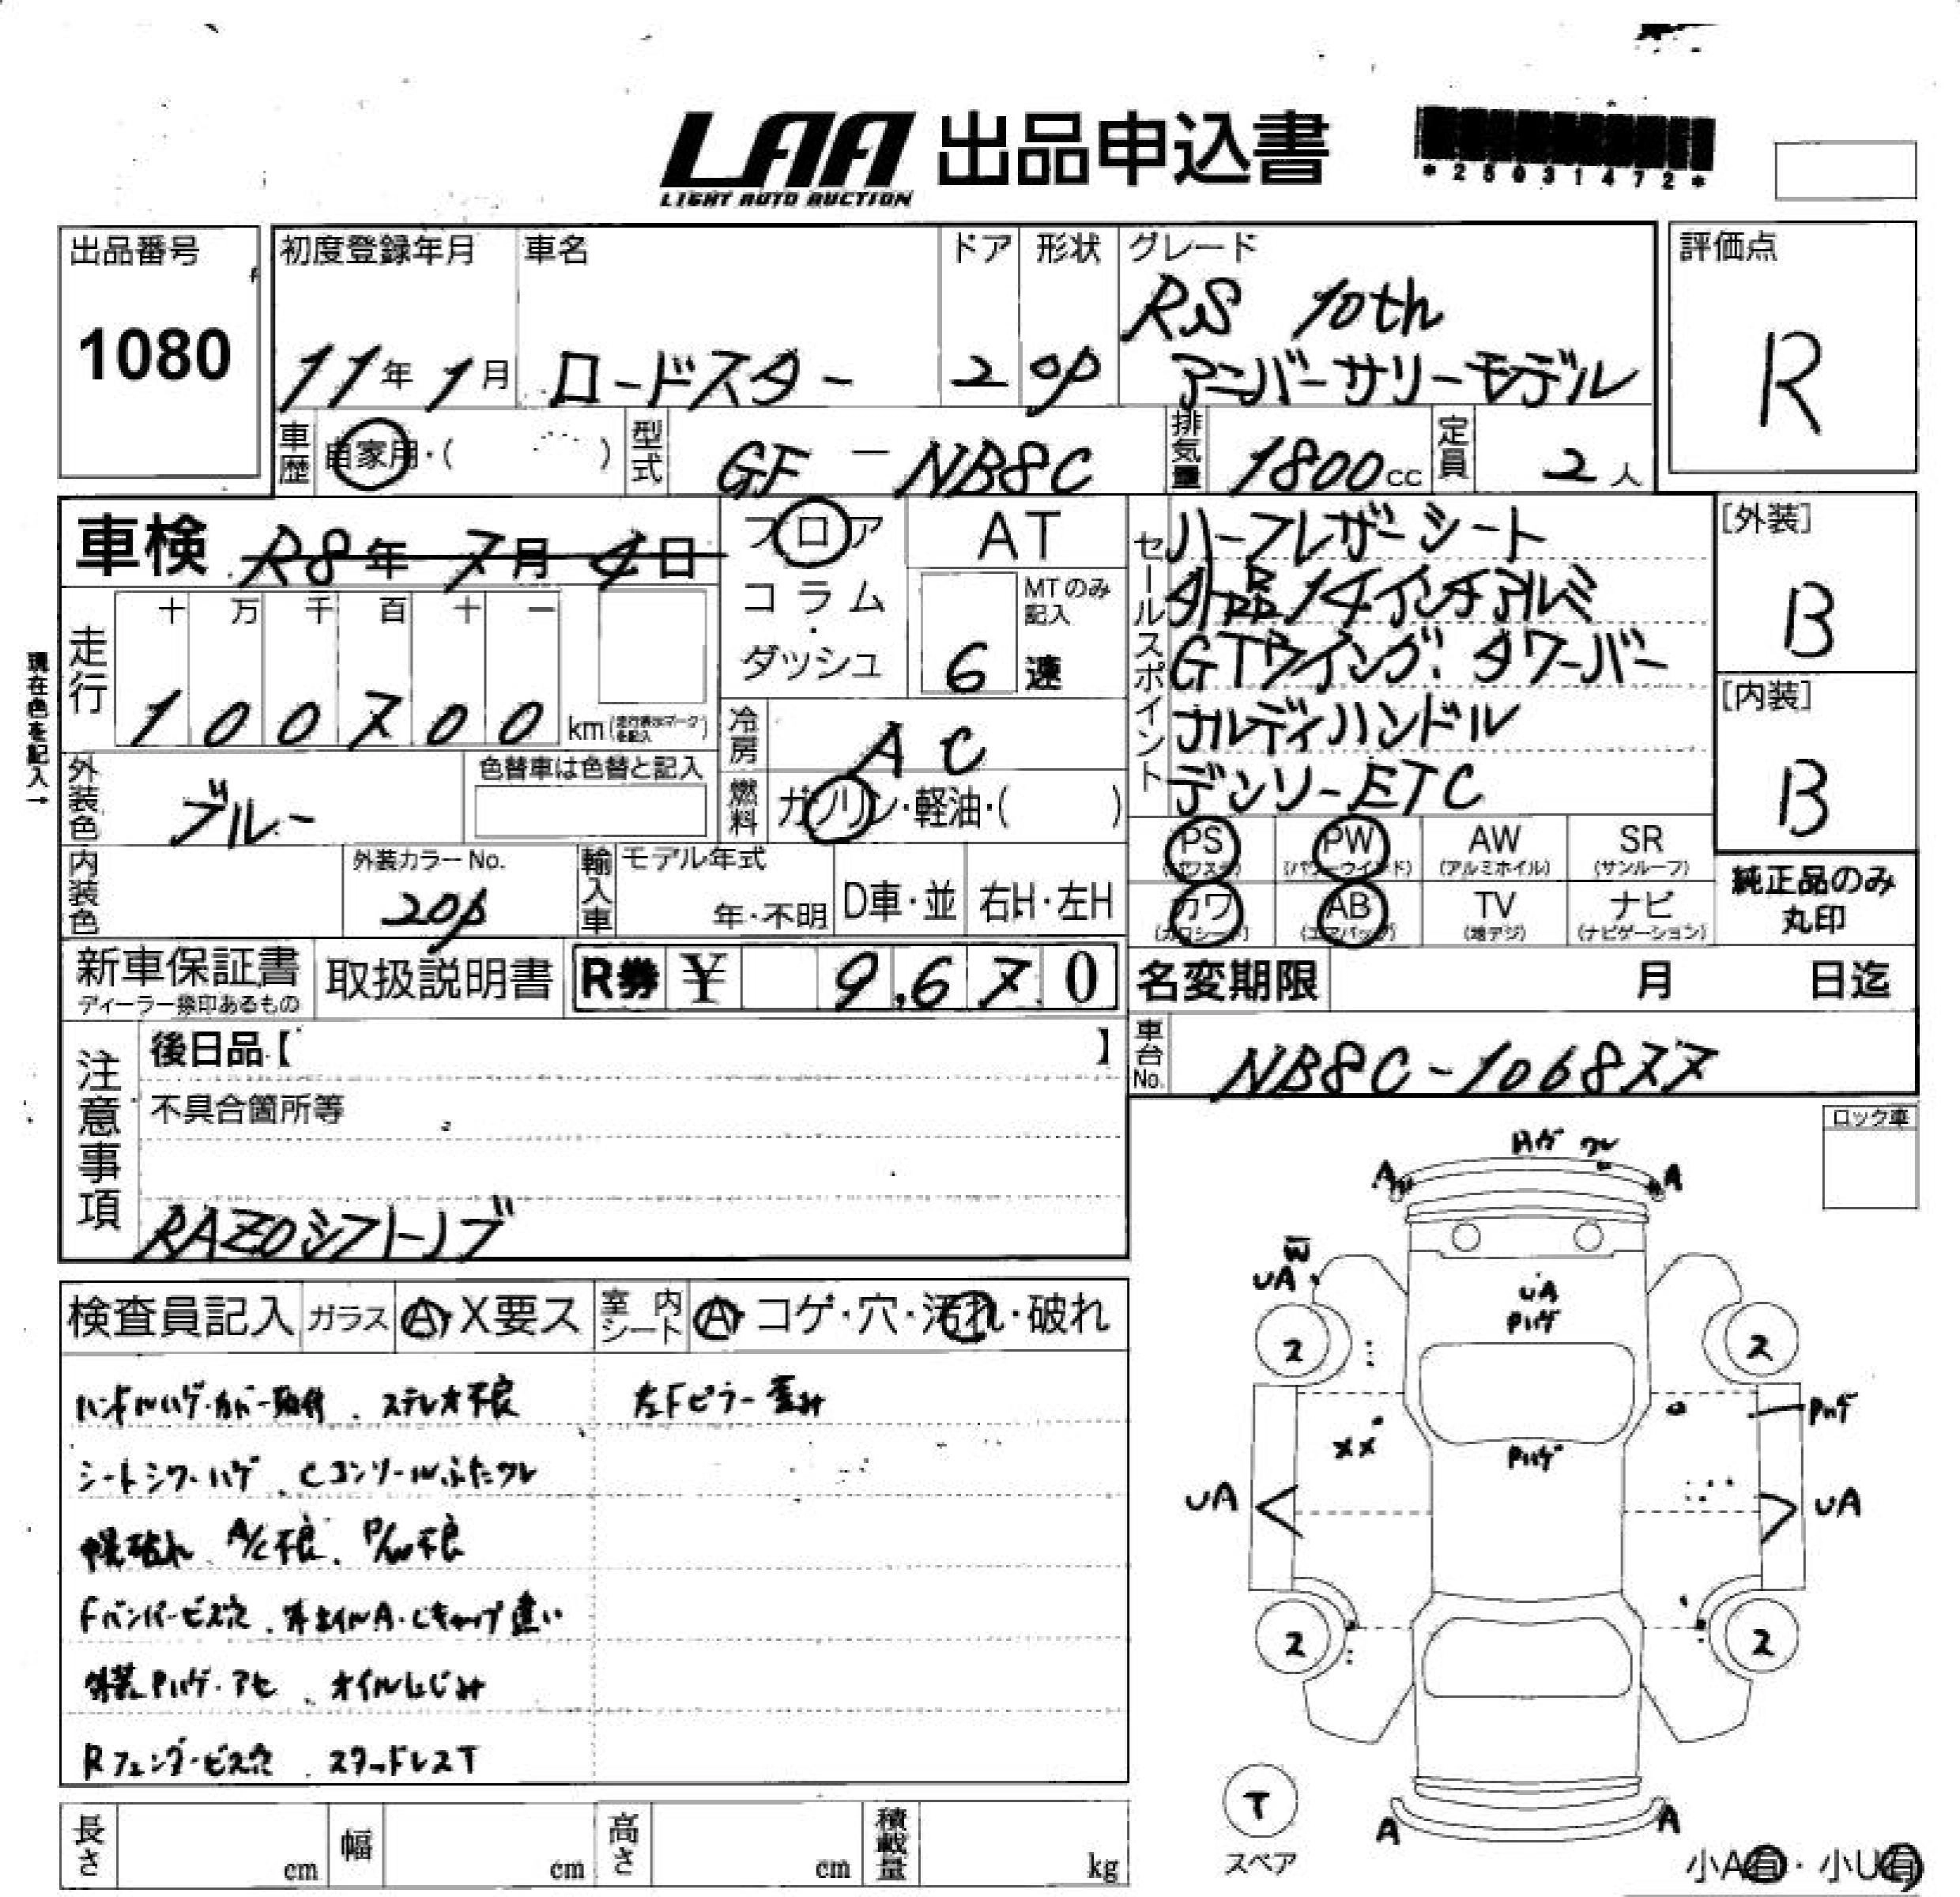 LAA 出品申込書
LIGHT AUTO AUCTION
*25031472*
出品番号
1080
初度登録年月
11年1月
車名
ロードスター
ドア
2
形状
OP
グレード
RS 10th
アニバーサリーモデル
評価点
R
車歴
自家用・( )
型式
GF-NB8C
排気量
1800cc
定員
2人
車検 R8年7月4日
フロア
コラム
・
ダッシュ
AT
MTのみ
記入
6速
セールスポイント
ハーフレザーシート
外品14インチアルミ
GTウイング・タワーバー
ナルディハンドル
デンソーETC
[外装]
B
[内装]
B
現在色を記入→
走行
十万千百十一
100700
km(走行表示マークを記入)
冷房
AC
外装色
ブルー
色替車は色替と記入
燃料
ガソリン・軽油・( )
PS
(パワステ)
PW
(パワーウインド)
AW
(アルミホイル)
SR
(サンルーフ)
カワ
(カワシート)
AB
(エアバッグ)
TV
(地デジ)
ナビ
(ナビゲーション)
純正品のみ
丸印
内装色
外装カラーNo.
20P
輸入車
モデル年式
年・不明
D車・並
右H・左H
新車保証書
ディーラー捺印あるもの
取扱説明書
R券 ¥ 9,670
名変期限 月 日迄
注意事項
後日品【 】
車台No.
NB8C-106877
不具合箇所等
RAZOシフトノブ
ロック車
検査員記入
ガラス
A・X要ス
室内シート
A・コゲ・穴・汚れ・破れ
ハンドルハゲ・カバー取付、ステレオ不良
左Fピラー歪み
シートシワ・ハゲ、Cコンソールふたワレ
幌破れ、A/C不良、P/W不良
Fバンパービス穴、ホイルA・Cキャップ違い
外装Pハゲ・アセ、オイルにじみ
Rフェンダービス穴、スタッドレスT
Hゲ ワレ
A
A
W
UA
UA
Pハゲ
2
2
Pハゲ
XX
Pハゲ
UA
UA
2
2
T
スペア
A
A
小A有・小U有
長さ cm
幅 cm
高さ cm
積載量 kg